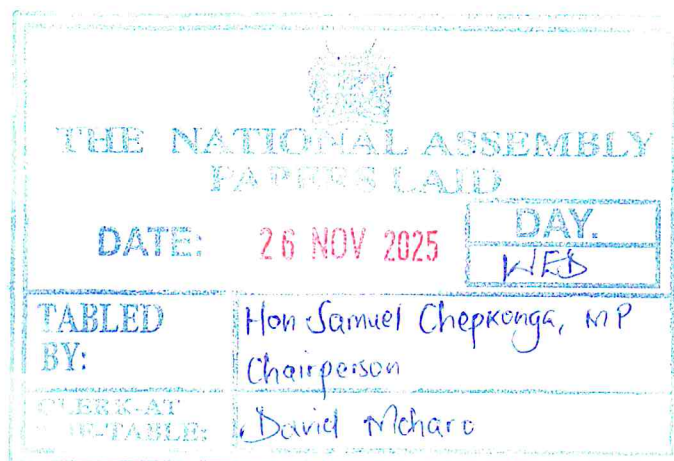 THE NATIONAL ASSEMBLY
PAPERS LAID
DATE: 26 NOV 2025
DAY.
WED
TABLED BY: Hon Samuel Chepkonga, MP
Chairperson
CLERK-AT THE-TABLE: David